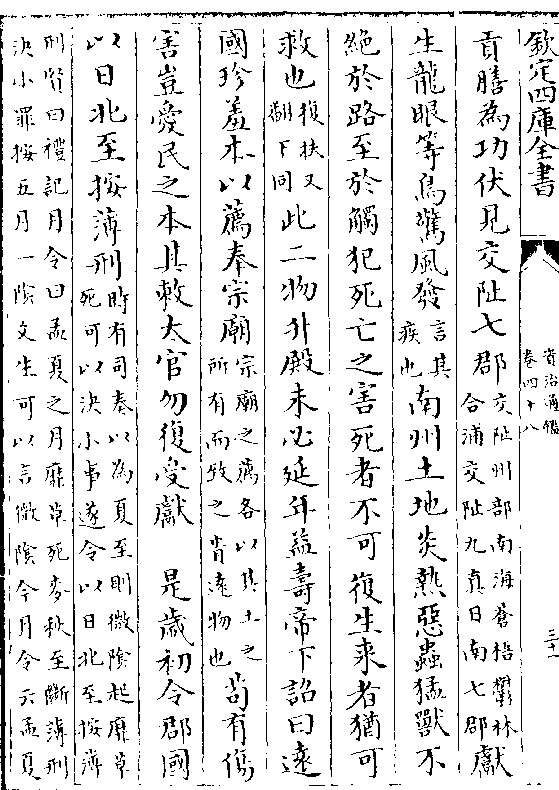 欽定四庫全書
資治通鑑
卷四十八
三十一
貢膳為功伏見交阯七郡交阯州部南海蒼梧鬱林
合浦交阯九真日南七郡獻
生龍眼等鳥驚風發言其
疾也南州土地炎熱惡蟲猛獸不
絕於路至於觸犯死亡之害死者不可復生来者猶可
救也復扶又
翻下同此二物升殿未必延年益壽帝下詔曰遠
國珍羞本以薦奉宗廟宗廟之薦各以其土之
所有而致之皆遠物也苟有傷
害豈愛民之本其敕太官勿復受獻 是歲初令郡國
以日北至按薄刑時有司奏以為夏至則微陰起靡草
死可以決小事遂令以日北至按薄
刑賢曰禮記月令曰孟夏之月靡草死麥秋至斷薄刑
決小罪按五月一陰爻生可以言微陰今月令云孟夏